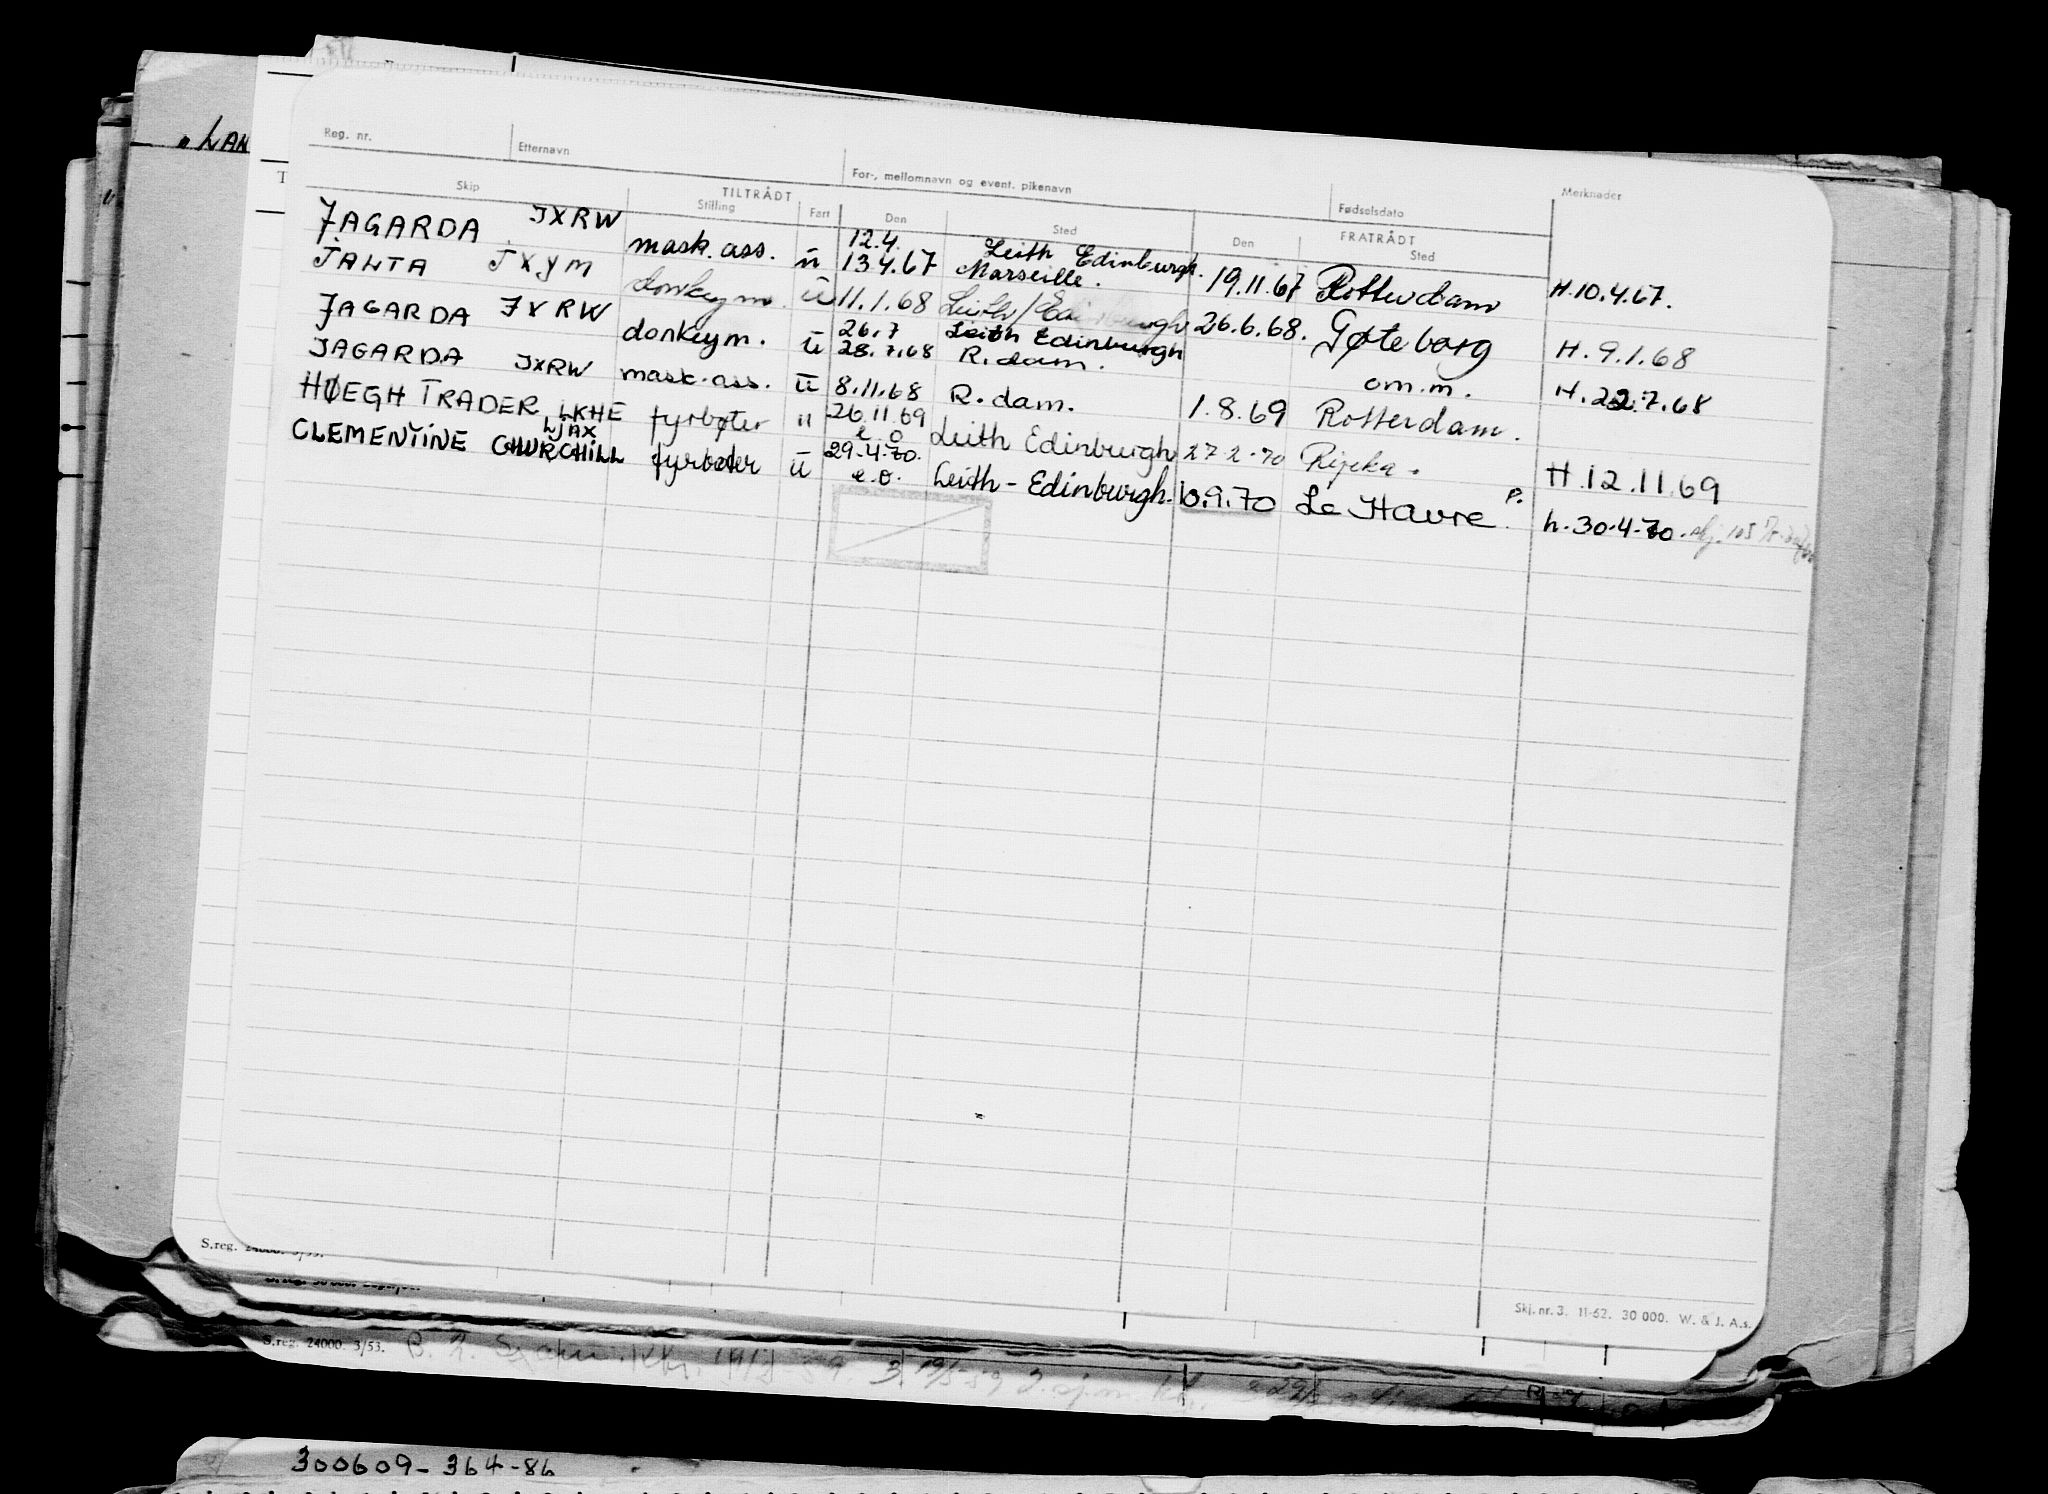 "LAN
Reg. nr. Etternavn For-, mellomnavn og event. pikenavn Fødselsdato Merknader
TILTRÅDT FRATRÅDT
Skip Stilling Fart Den Sted Den Sted
JAGARDA JXRW mask. ass. u 12.4. 13.4.67 Leith Edinburgh. Marseille. 19.11.67 Rotterdam H.10.4.67.
JALTA JXYM donkeym. u 11.1.68 Leith/Edinburgh 26.6.68. Gøteborg H.9.1.68
JAGARDA JXRW donkeym. u 26.7 28.7.68 Leith Edinburgh R.dam. om.m. H.22.7.68
JAGARDA JXRW mask.ass. u 8.11.68 R.dam. 1.8.69 Rotterdam.
HØEGH TRADER LKHE fyrbøter u 26.11.69 e o Leith Edinburgh 27.2.70 Rijeka. H.12.11.69
CLEMENTINE CHURCHILL LJAX fyrbøter u 29.4.70. e.o. Leith-Edinburgh. 10.9.70 Le Havre. P. h.30.4.70.
Skj. nr. 3. 11-62. 30 000. W. & J. A.s.
S.reg. 24000. 3/53.
S.reg. 24000. 3/53.
300609-364-86